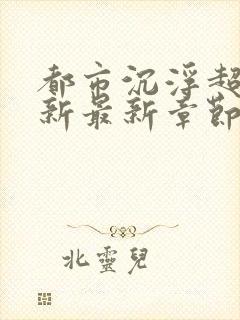 都市沉浮超
新最新章節
北靈兒